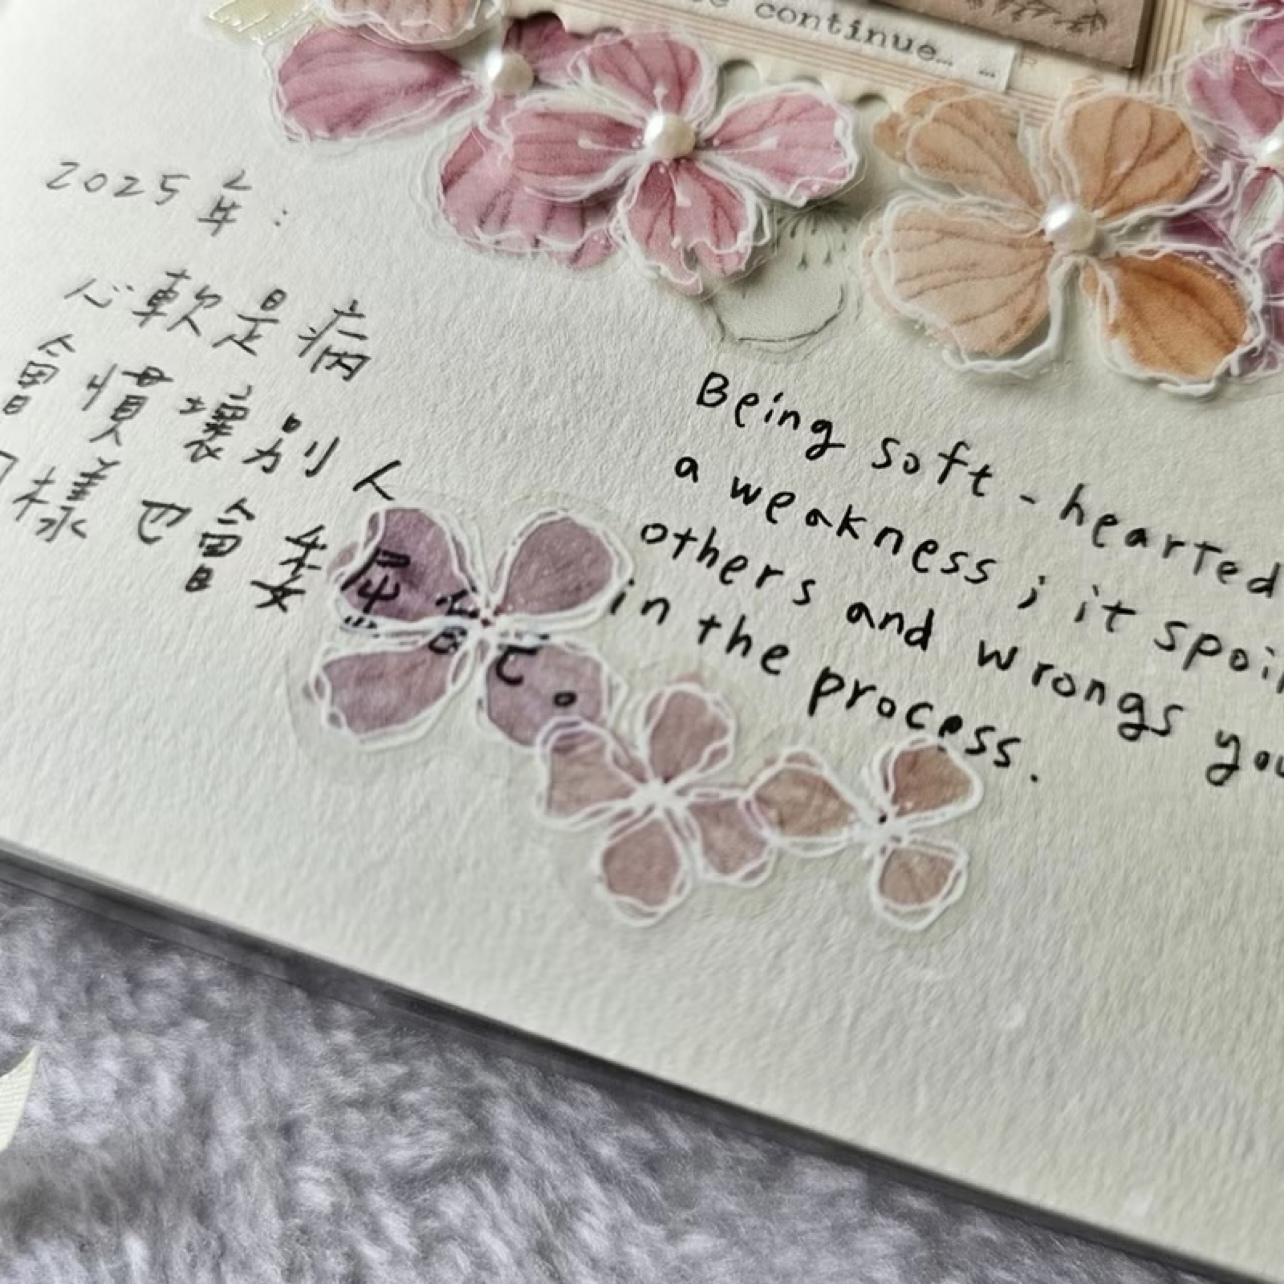 continue… …
2025年：
心軟是病
會慣壞別人
樣也會委屈自己。
Being soft-hearted
a weakness; it spoi
others and wrongs you
in the process.